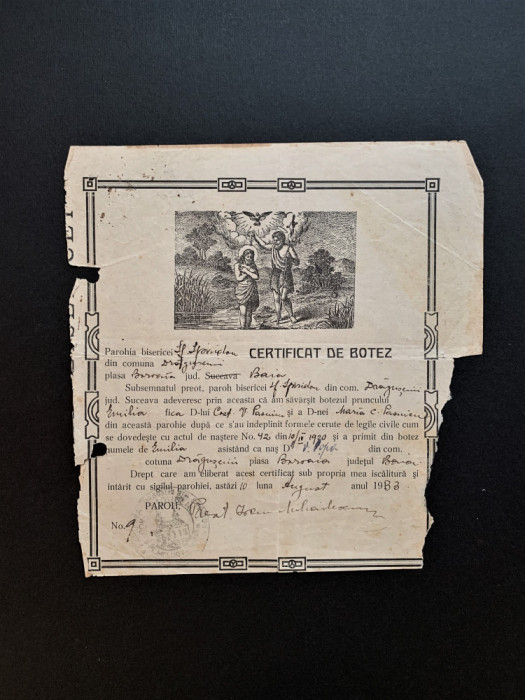 Parohia bisericei Sf. Spiridon CERTIFICAT DE BOTEZ
din comuna Drăgușeni
plasa Boroaia jud. Suceava Baia
Subsemnatul preot, paroh bisericei Sf. Spiridon din com. Drăgușeni
jud. Suceava adeveresc prin aceasta că am săvârșit botezul pruncului
Emilia fica D-lui Cost. V. și a D-nei Maria C.
din această parohie după ce s'au îndeplinit formele cerute de legile civile cum
se dovedește cu actul de naștere No. 42 din 10/IV 1920 și a primit din botez
numele de Emilia asistând ca naș D din com.
cotuna Drăgușeni plasa Boroaia județul Baia
Drept care am eliberat acest certificat sub propria mea iscălitură și
întărit cu sigilul parohiei, astăzi 10 luna August anul 1933
PAROH, Preot Ioan
No. 9